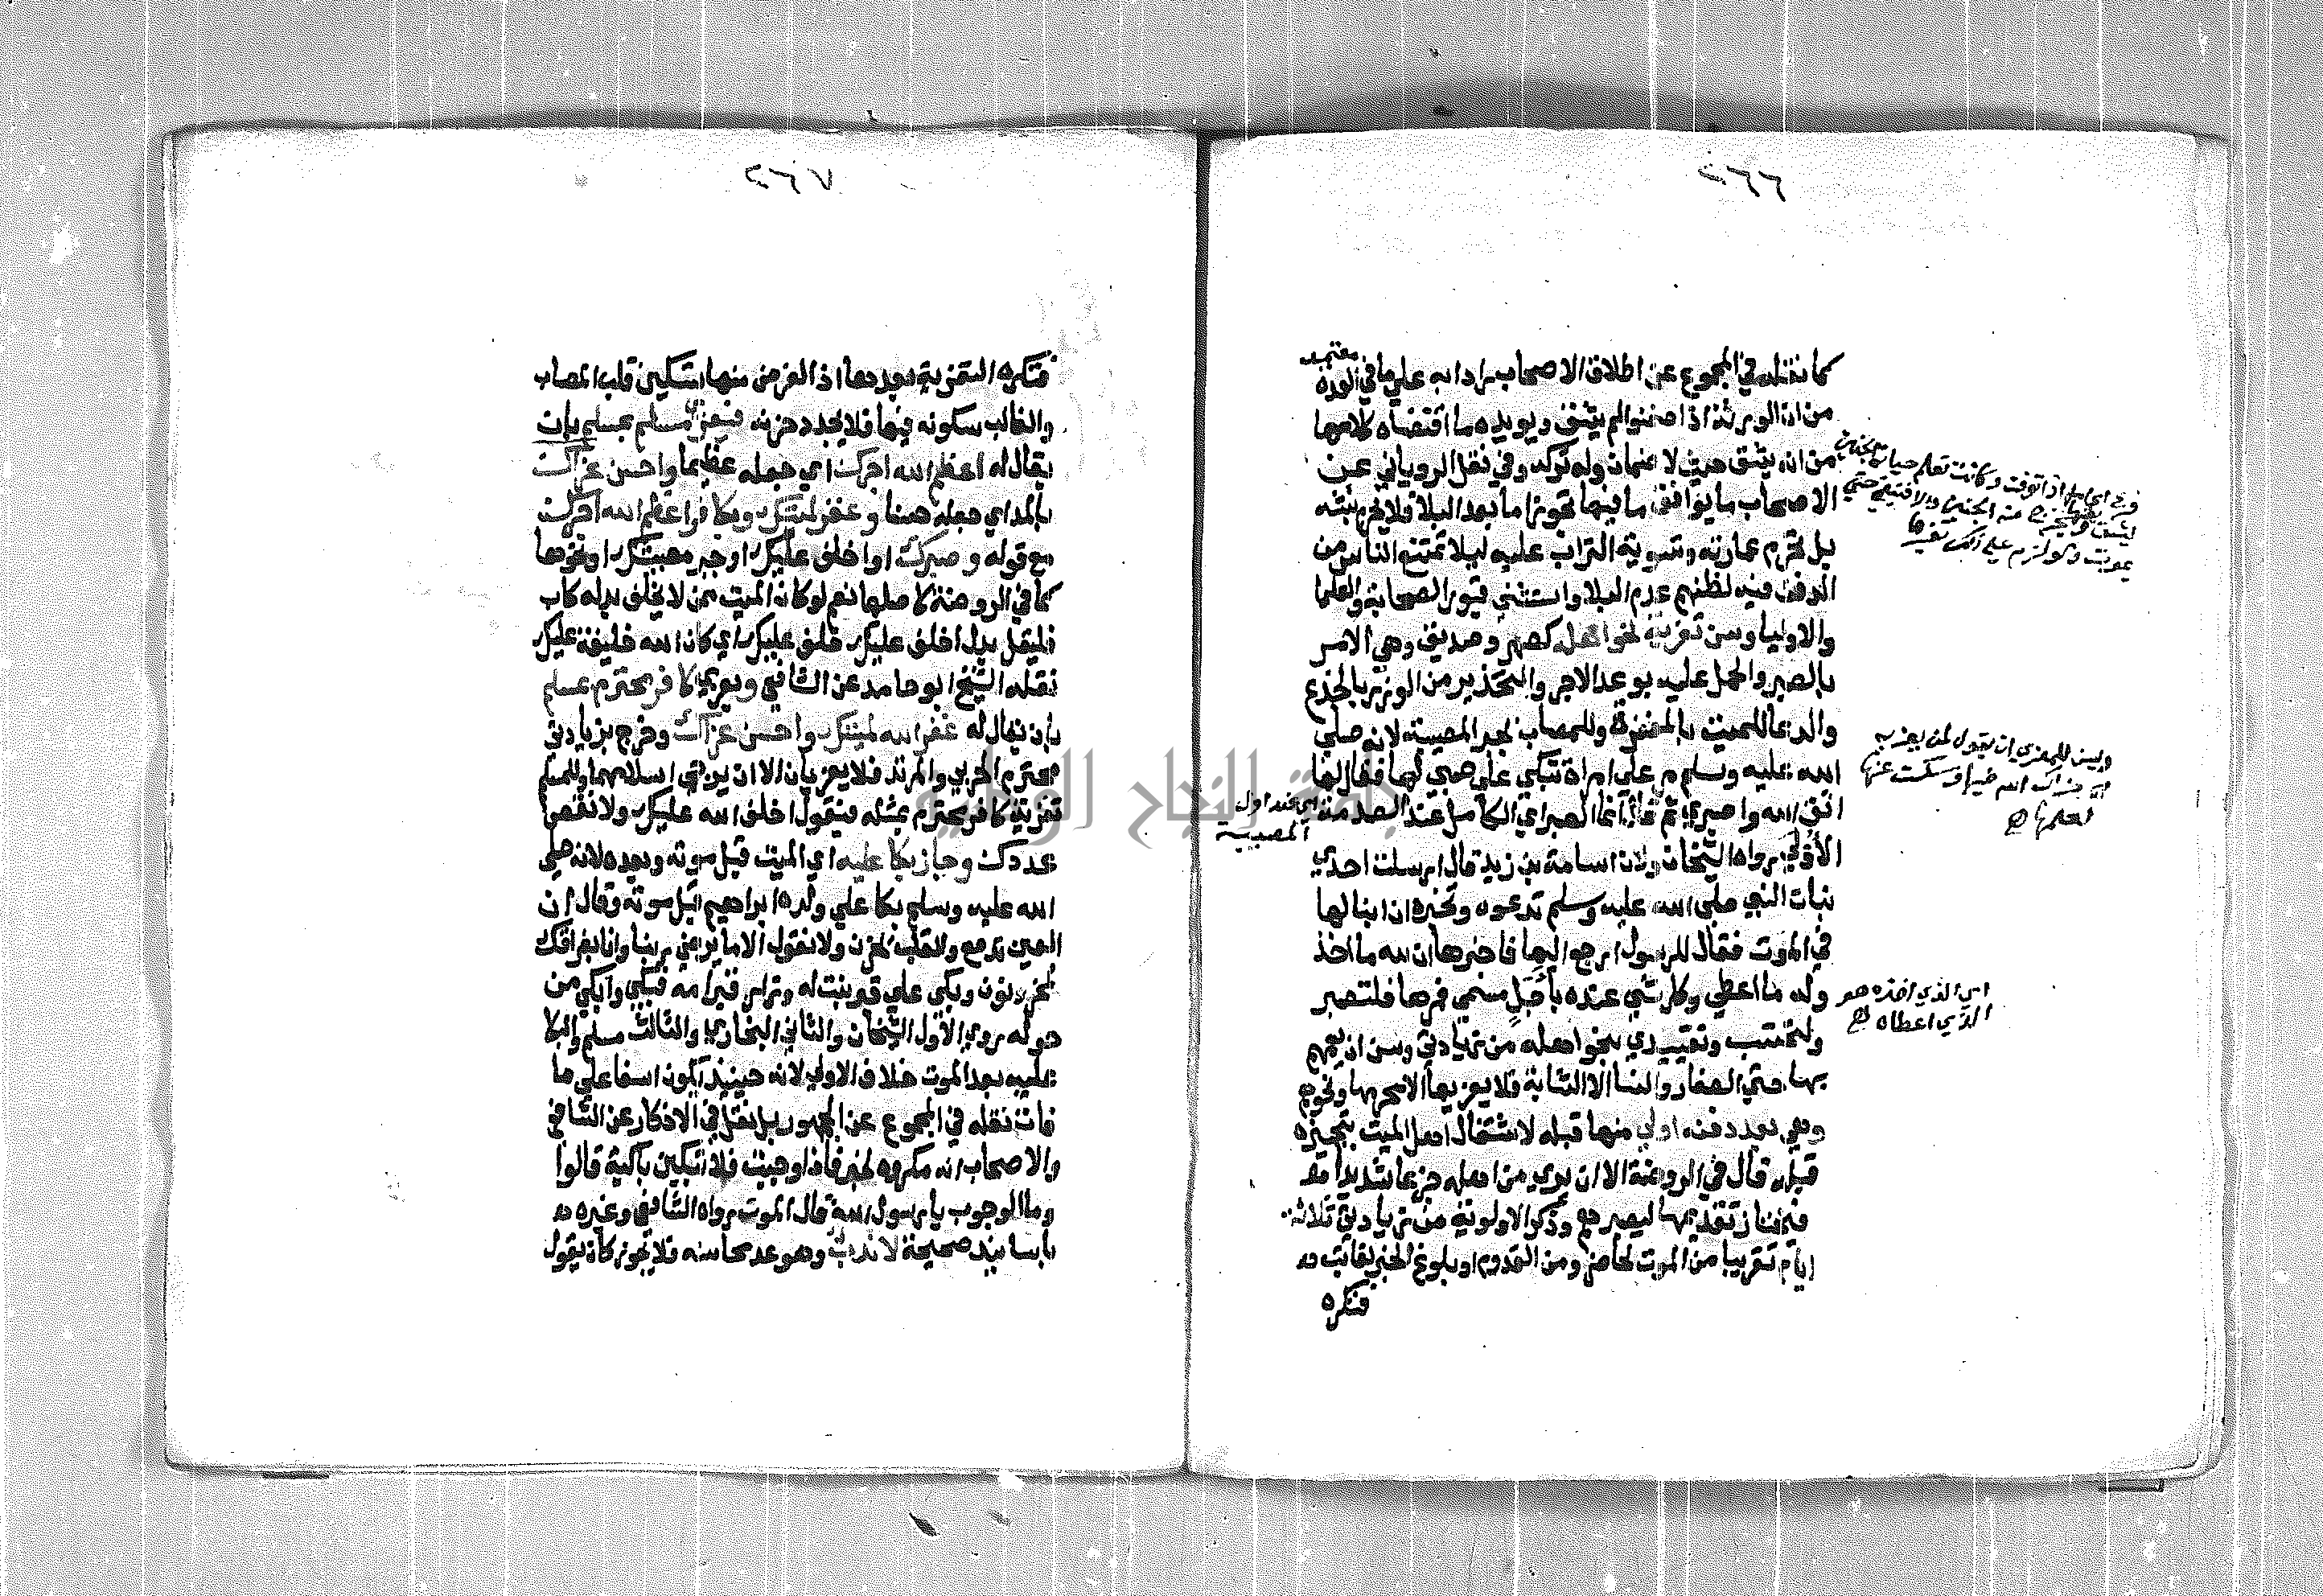 ٢٦٦
كما نقله في المجموع عن اطلاق الاصحاب رادا به علي ما في العدة
معتمد
من ان الورثة اذا ضمنوا لم ينبش ويويده ما اقتضاه كلامهما
من انه ينبش حيث لا ضمان وله تركة وفي نقل الروياني عن
الاصحاب ما يوافق ما فيها تجوز اما بعد البلا فلا يحرم نبشه
بل تحرم عمارته وتسوية التراب عليه ليلا تمتنع الناس من
الدفن فيه لظنهم عدم البلا واستثني قبور الصحابة والعلما
والاوليا وسن تعزية لنحو اهل كصهر وصديق وهي الامر
بالصبر والحمل عليه بوعد الاجر والتحذير من الوزر بالجزع
والدعا للميت بالمغفرة وللمصاب بجبر المصيبة لانه صلي
الله عليه وسلم مر علي امراة تبكي علي صبي لها فقال لها
اتق الله واصبري ثم قال انما الصبر اي الكامل عند الصدمة
اي عند اول
المصيبة
الأولي رواه الشيخان ولان اسامة بن زيد قال ارسلت احدي
بنات النبي صلي الله عليه وسلم تدعوه وتخبره ان ابنا لها
في الموت فقال للرسول ارجع اليها فاخبرها ان لله ما اخذ
وله ما اعطي وكل شي عنده بأجل مسمي فمرها فلتصبر
ولتحتسب وتقييدي بنحو اهله من زيادتي وسن ان يعمهم
بها حتي الصغار والنسا الا الشابة فلا يعزيها الا محرمها ونحوه
وهي بعد دفنه اولي منها قبله لاشتغال اهل الميت بتجهيزه
قبله قال في الروضة الا ان يري من اهله جزعا شديدا
فيختار تقديمها ليصبرهم وذكر الاولوية من زيادتي ثلاثة
ايام تقريبا من الموت لحاضر ومن القدوم او بلوغ الخبر لغائب
فتكره
فرع الحامل اذا توفت وكانت تعلم حياة الجنين
بموت ولو لزم علي ذلك تغيرها
ويسن للمعزي ان يقول لمن يعزيه
جزاك الله خيرا وسكت عنها
لعلمها اه
اي الذي اخذه هو
الذي اعطاه اه
٢٦٧
فتكره التعزية بعدها اذ الغرض منها تسكين قلب المصاب
والغالب سكونه فيها فلا يجدد حزنه فيعزي مسلم بمسلم بان
يقال له اعظم الله اجرك اي جعله عظيما واحسن عزاك
بالمد اي جعله حسنا وغفر لميتك وبكافر اعظم الله اجرك
مع قوله وصبرك او اخلف عليك او جبر مصيبتك او نحوها
كما في الروضة كاصلها نعم لو كان الميت ممن لا يخلف بدله كاب
فليقل بدل اخلف عليك خلف عليك اي كان الله خليفة عليك
نقله الشيخ ابو حامد عن الشافعي ويعزي كافر محترم بمسلم
بان يقال له غفر الله لميتك واحسن عزاك وخرج بزيادتي
محترم الحربي والمرتد فلا يعزيان الا ان يرتجي اسلامهما وللمسلم
تعزية كافر محترم بمثله فيقول اخلف الله عليك ولا نقص
عددك وجاز بكا عليه اي الميت قبل موته وبعده لانه صلي
الله عليه وسلم بكا علي ولده ابراهيم قبل موته وقال ان
العين تدمع والقلب يحزن ولا نقول الا ما يرضي ربنا وانا بفراقك
لمحزونون وبكي علي قبر بنت له وزار قبر امه فبكي وابكي من
حوله روي الأول الشيخان والثاني البخاري والثالث مسلم والبكا
عليه بعد الموت خلاف الاولي لانه حينيذ يكون اسفا علي ما
فات نقله في المجموع عن الجمهور بل نقل في الاذكار عن الشافعي
والاصحاب انه مكروه لخبر فاذا وجبت فلا تبكين باكية قالوا
وما الوجوب يا رسول الله قال الموت رواه الشافعي وغيره
باسانيد صحيحة لا ندب وهو عد محاسنه فلا تجوز كان يقول